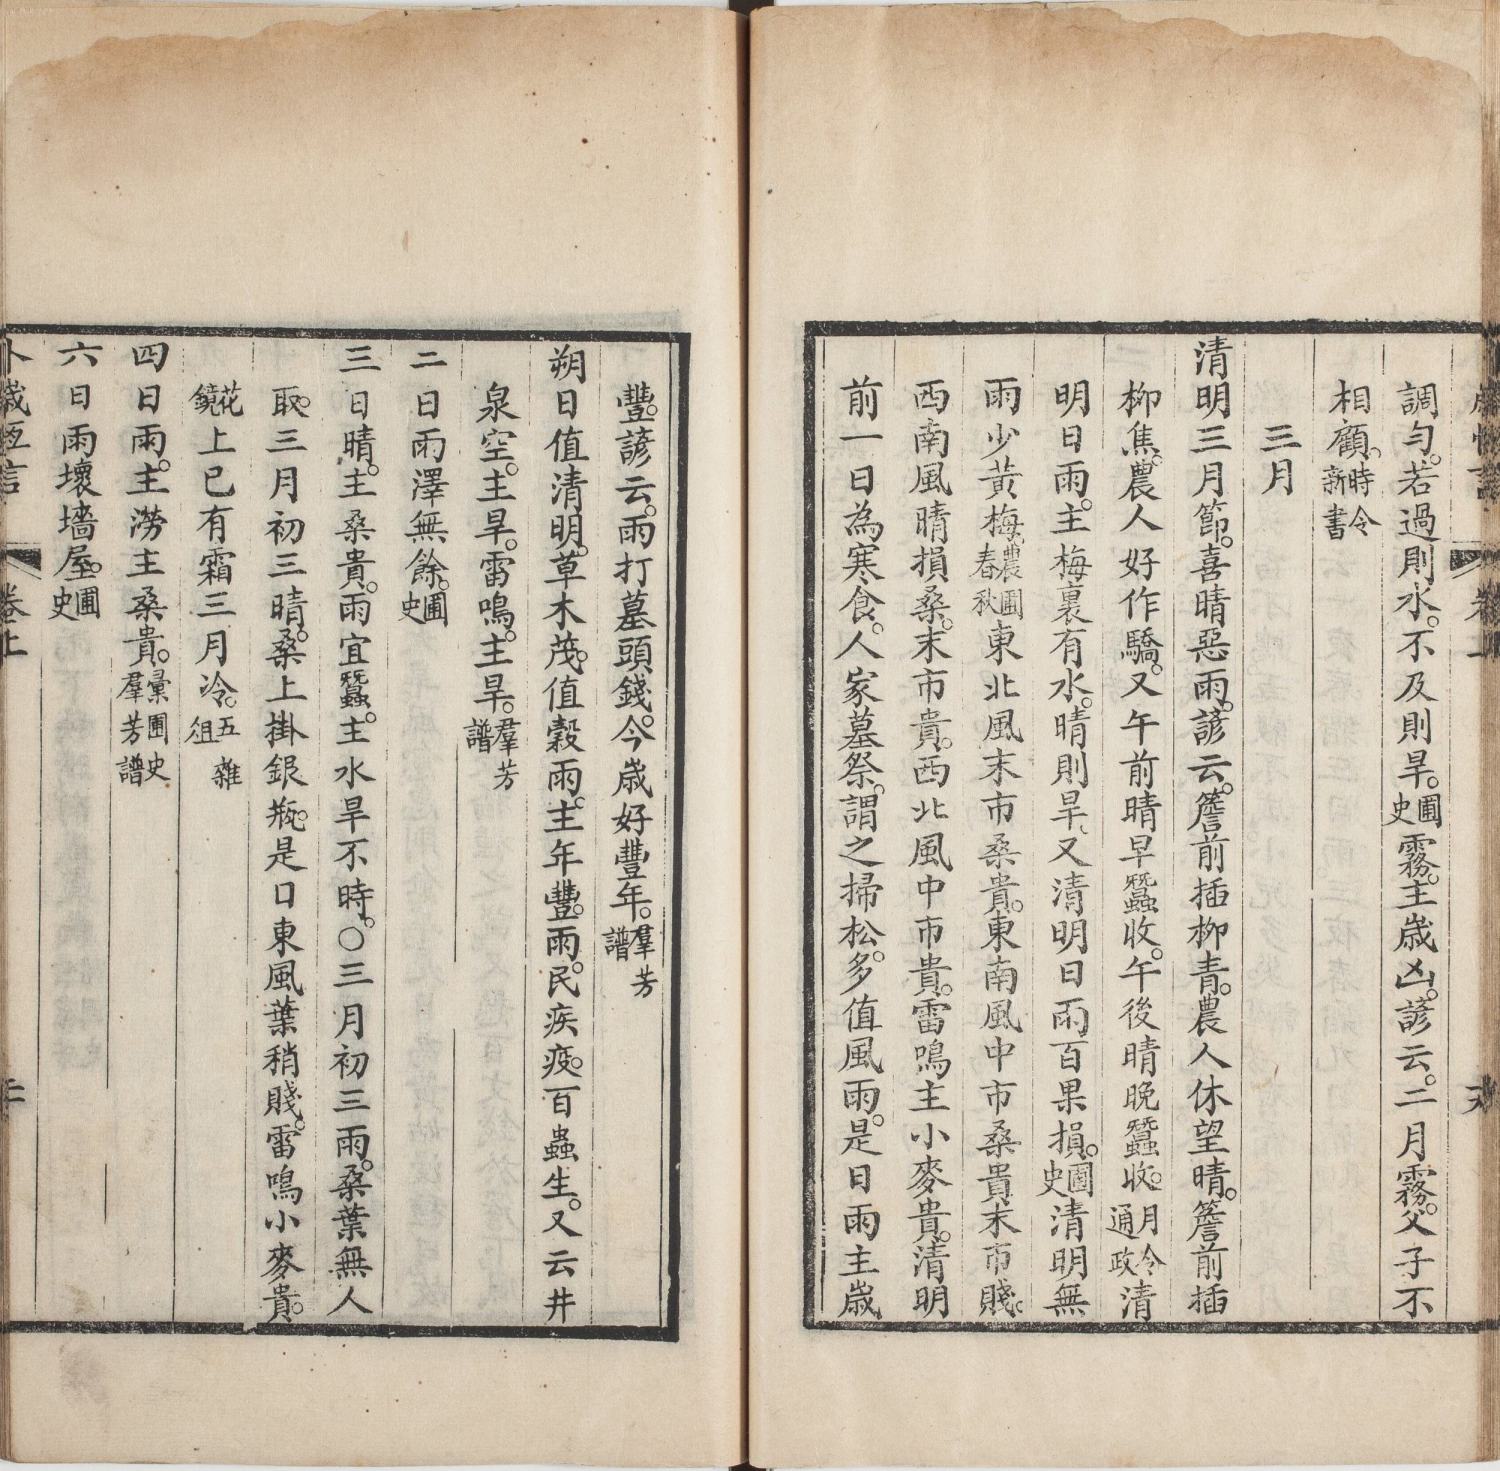 調勻。若過則水。不及則旱。圃史霧。主歳凶。諺云。二月霧。父子不
相顧。時令新書
三月
清明三月節。喜晴惡雨。諺云。簷前插柳青。農人休望晴。簷前插
柳焦。農人好作驕。又午前晴早蠶收。午後晴晚蠶收。月令通政清
明日雨。主梅裏有水。晴則旱。又清明日雨百果損。圃史清明無
雨少黃梅。農圃春秋東北風末市桑貴。東南風中市桑貴末市賤。
西南風晴損桑。末市貴。西北風中市貴。雷鳴主小麥貴。清明
前一日為寒食。人家墓祭。謂之掃松。多值風雨。是日雨主歳
豐。諺云。雨打墓頭錢。今歳好豐年。羣芳譜
朔日值清明。草木茂。值穀雨。主年豐。雨。民疾疫。百蟲生。又云井
泉空。主旱。雷鳴。主旱。羣芳譜
二日雨澤無餘。圃史
三日晴。主桑貴。雨宜蠶。主水旱不時。○三月初三雨。桑葉無人
取。三月初三晴。桑上掛銀瓶。是口東風葉稍賤。雷鳴小麥貴。
花鏡上巳有霜三月冷。五雜俎
四日雨。主澇主桑貴。彙圃史羣芳譜
六日雨壞墻屋。圃史
卜歳恆言
卷上